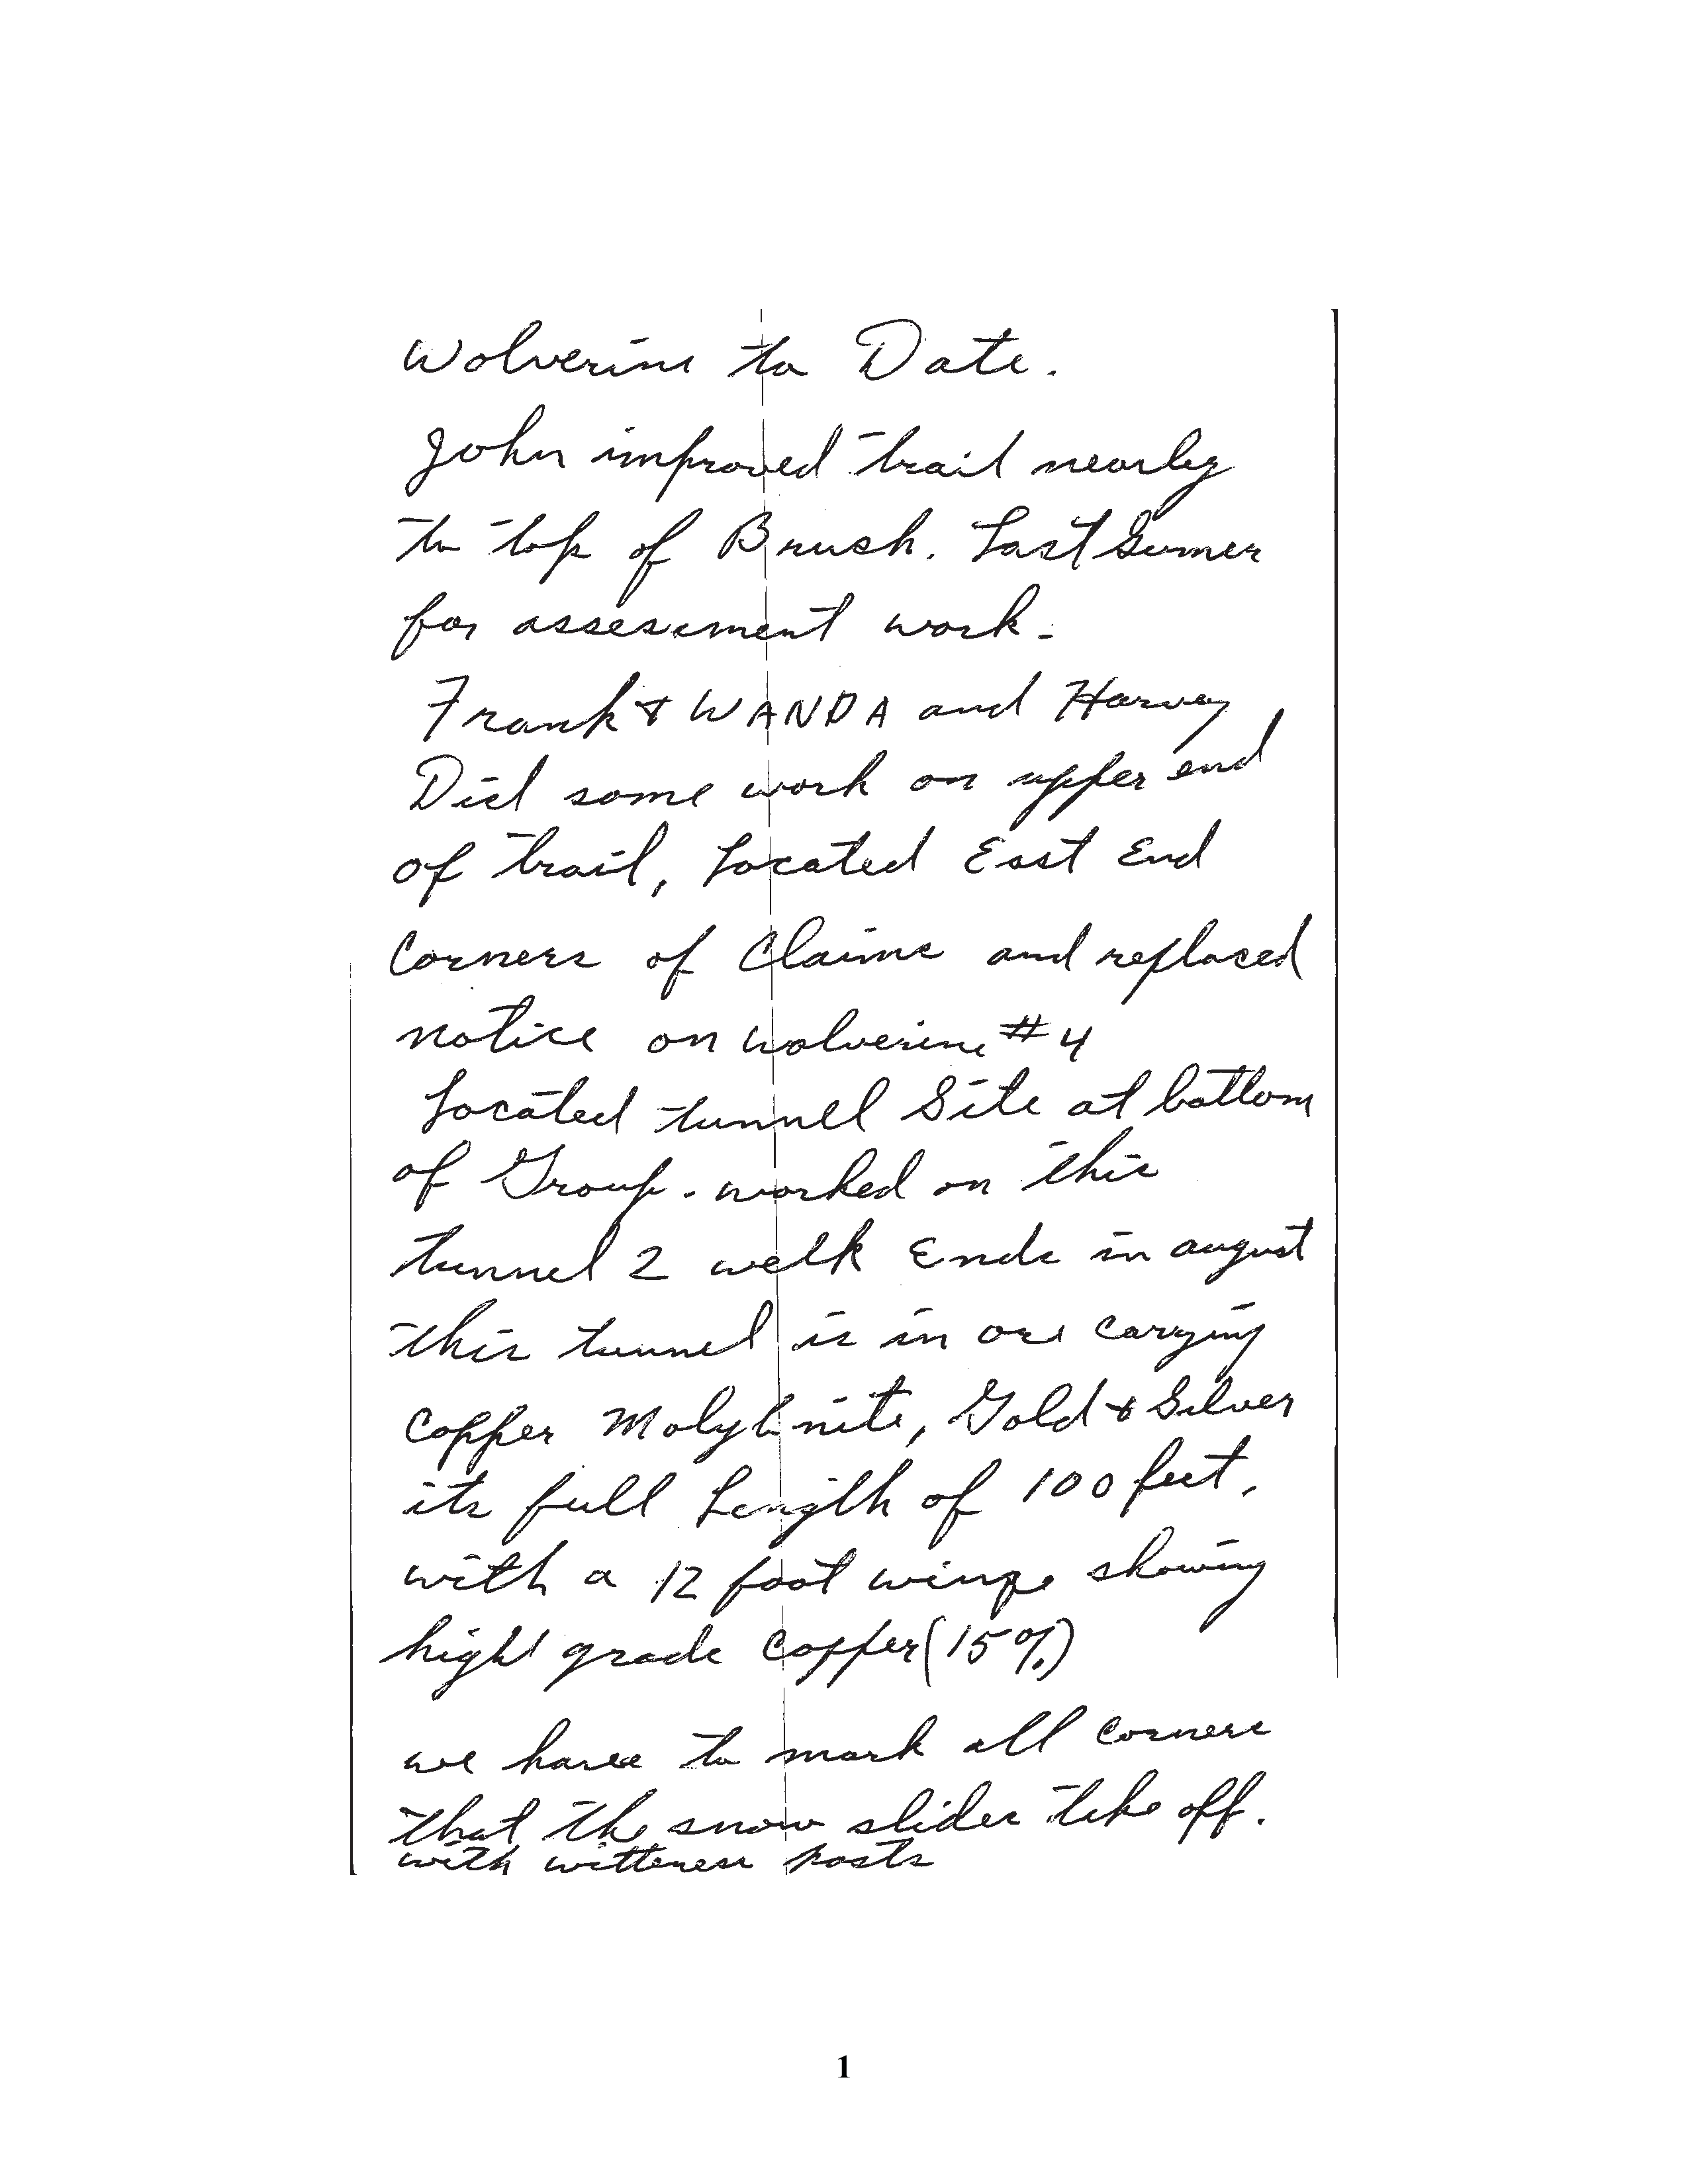 Wolverine to Date.
John improved trail nearly
to top of Brush. Last Sumer
for assesement work.
Frank & WANDA and Harvey
Did some work on upper end
of trail, Located East End
Corners of Claims and replaced
notice on Wolverine #4
Located tunnel Site at bottom
of Group. worked on this
tunnel 2 week Ends in august
this tunnel is in ore carying
Copper Molybnite, Gold & Silver
its full Length of 100 feet,
with a 12 foot winze showing
high grade Copper (15%)
we have to mark all corners
that the snow slides take off.
with witteness posts
1